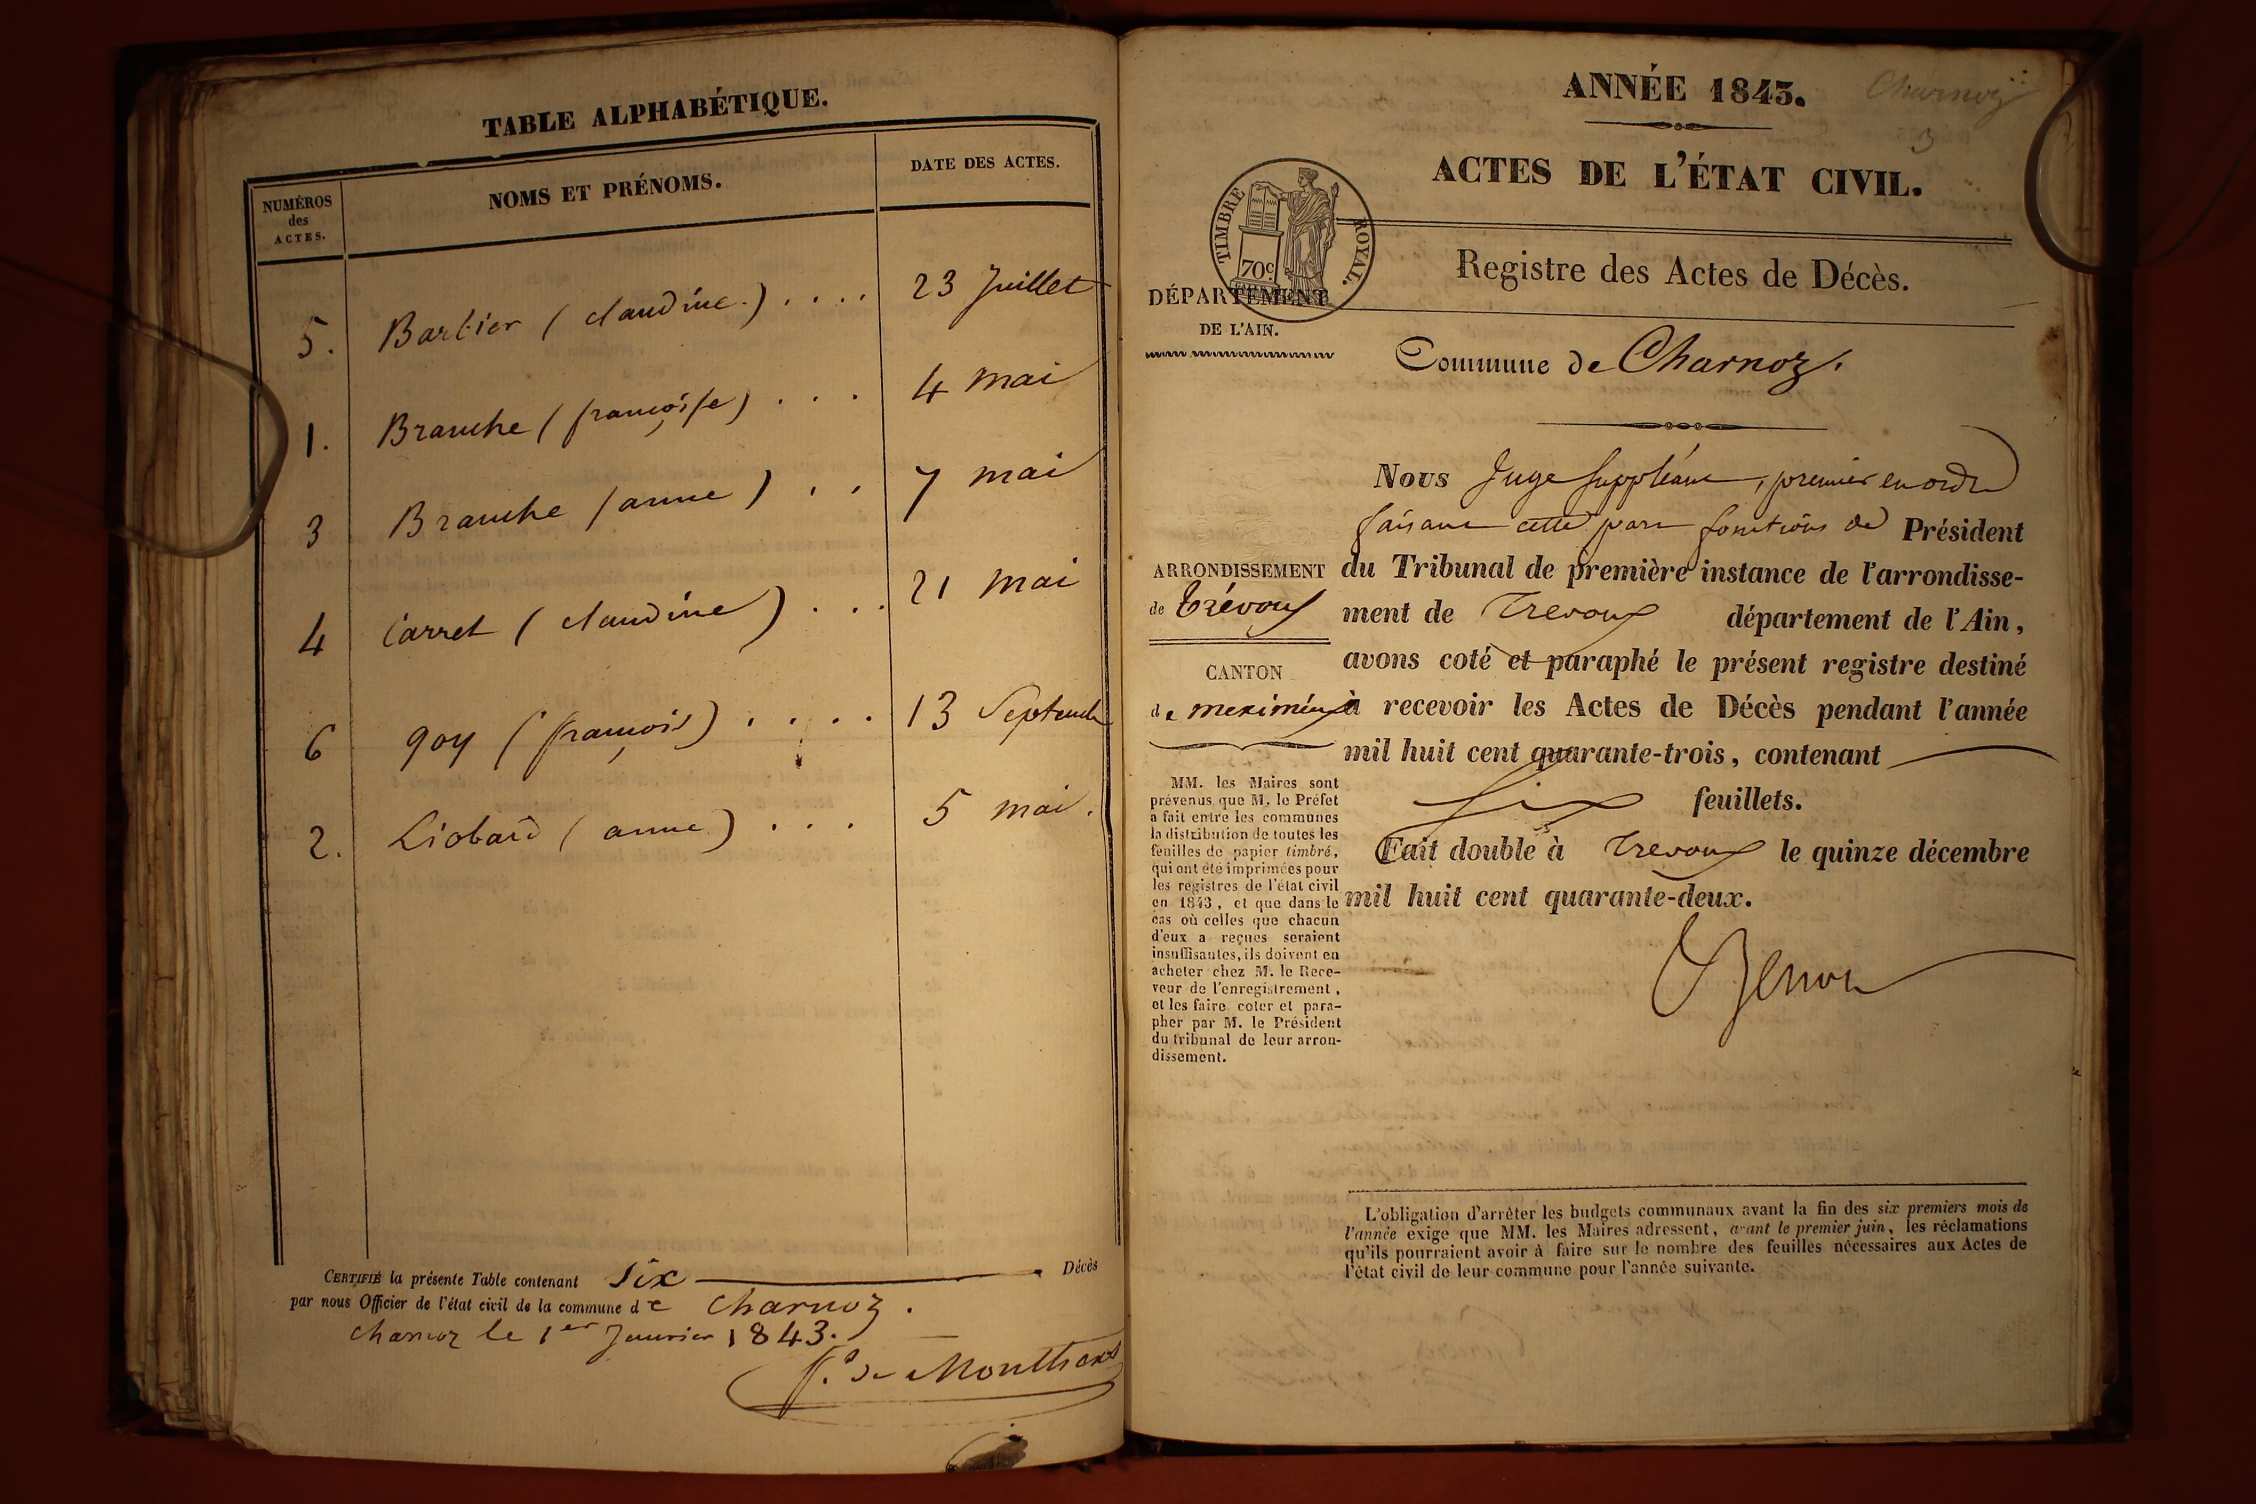 TABLE ALPHABÉTIQUE.
NUMÉROS des ACTES.
NOMS ET PRÉNOMS.
DATE DES ACTES.
5. Barbier (claudine.) . . . . 23 Juillet
1. Branche (françoise) . . . 4 mai
3 Branche (anne) . . 7 mai
4 Carret (claudine) . . . 21 mai
6 goy (françois) . . . . 13 Septembre
2. Liobard (anne) . . . 5 mai.
CERTIFIÉ la présente Table contenant Six Décès
par nous Officier de l'état civil de la commune de Charnoz.
charnoz le 1er Janvier 1843.
ANNÉE 1843.
Charnoz
3
ACTES DE L'ÉTAT CIVIL.
TIMBRE ROYAL.
70c
Registre des Actes de Décès.
DÉPARTEMENT
DE L'AIN.
Commune de Charnoz.
ARRONDISSEMENT
de Trévoux
CANTON
de meximieux
MM. les Maires sont
prévenus que M. le Préfet
a fait entre les communes
la distribution de toutes les
feuilles de papier timbré,
qui ont été imprimées pour
les registres de l'état civil
en 1843, et que dans le
cas où celles que chacun
d'eux a reçues seraient
insuffisantes, ils doivent en
acheter chez M. le Rece-
veur de l'enregistrement,
et les faire coter et para-
pher par M. le Président
du tribunal de leur arron-
dissement.
Nous Juge Suppléant, premier en ordre
faisant cette part fonctions de Président
du Tribunal de première instance de l'arrondisse-
ment de Trevoux département de l'Ain,
avons coté et paraphé le présent registre destiné
à recevoir les Actes de Décès pendant l'année
mil huit cent quarante-trois, contenant
Six feuillets.
Fait double à Trevoux le quinze décembre
mil huit cent quarante-deux.
L'obligation d'arrêter les budgets communaux avant la fin des six premiers mois de
l'année exige que MM. les Maires adressent, avant le premier juin, les réclamations
qu'ils pourraient avoir à faire sur le nombre des feuilles nécessaires aux Actes de
l'état civil de leur commune pour l'année suivante.